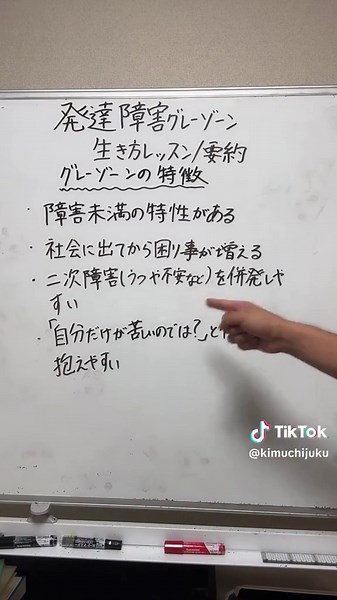 発達障害グレーゾーン
生き方レッスン/要約
グレーゾーンの特徴
・障害未満の特性がある
・社会に出てから困り事が増える
・二次障害(うつや不安など)を併発しや
すい
・「自分だけが苦しいのでは?」と
抱えやすい
TikTok
@kimuchijuku